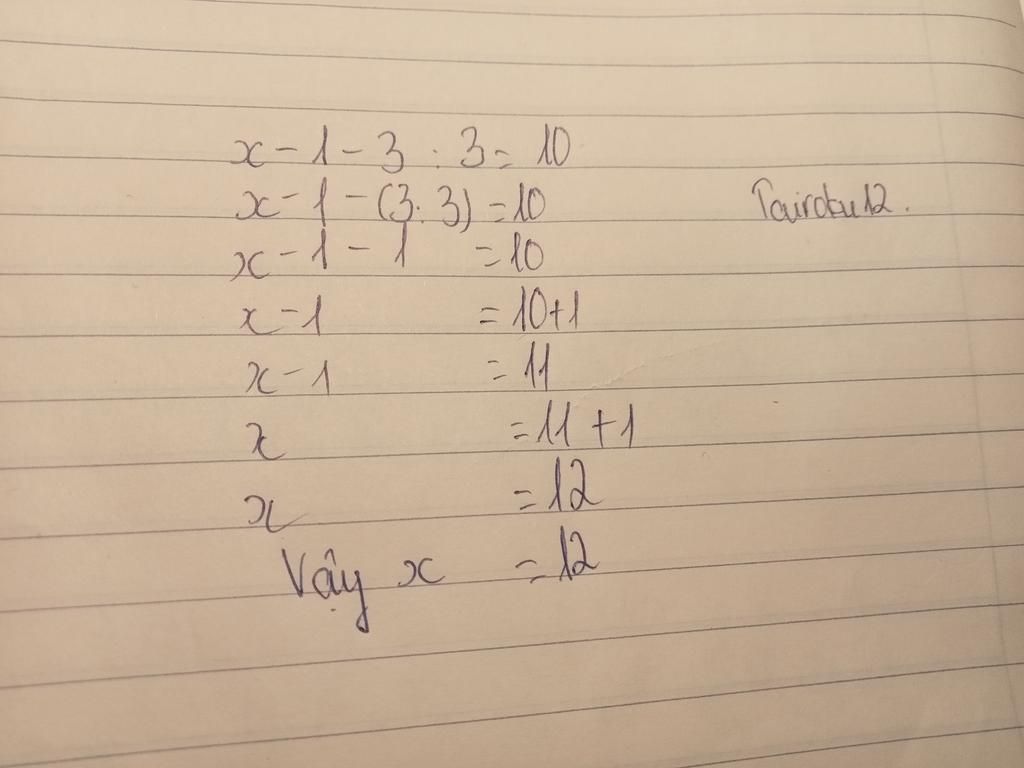 x - 1 - 3 : 3 = 10
x - 1 - (3 : 3) = 10
x - 1 - 1 = 10
x - 1 = 10 + 1
x - 1 = 11
x = 11 + 1
x = 12
Vậy x = 12